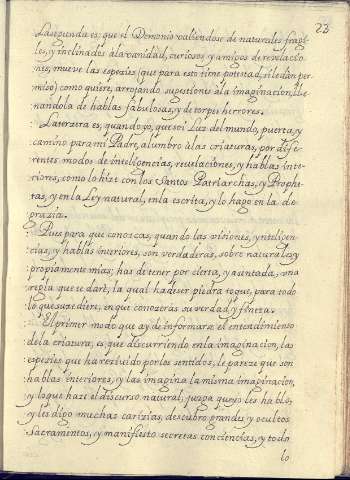 23
La segunda es; que el Demonio valiendose de naturales fragi-
les, y inclinados à la vanidad, curiosos y amigos de revelacio-
nes, mueve las espezies (que para esto tiene potestad, si le dàn per-
miso) como quiere, arrojando sugestiones à la imaginacion, lle-
nandola de hablas fabulosas, y de torpes herrores.
La terzera es, quando yo, que soi Luz del mundo, puerta, y
camino para mi Padre, alumbro à las criaturas, por dife-
rentes modos de inteligencias, revelaciones, y hablas inte-
riores, como lo hize con los Santos Patriarchas, y Prophe-
tas, y en la Ley natural, en la escrita, y lo hago en la de
grazia.
Pues para que conozcas, quando las visiones, ynteligen-
cias, y hablas interiores, son verdaderas, sobre naturales, y
propiamente mias; has de tener por cierta, y asentada, una
regla que te darè, la qual ha de ser piedra toque, para todo
lo que su zediere, en que conozeras su verdad, y fineza.
El primer modo que ay de informarse el entendimiento
de la criatura, es; que discurriendo en la imaginacion, las
espezies que ha rezivido por los sentidos, le pareze que son
hablas interiores, y las imagina la misma imaginacion,
y lo que haze el discurso natural, juzga que yo les hablo,
y les digo muchas carizias, descubro grandes, y ocultos
Sacramentos, y manifiesto secretas conciencias, y todo
lo